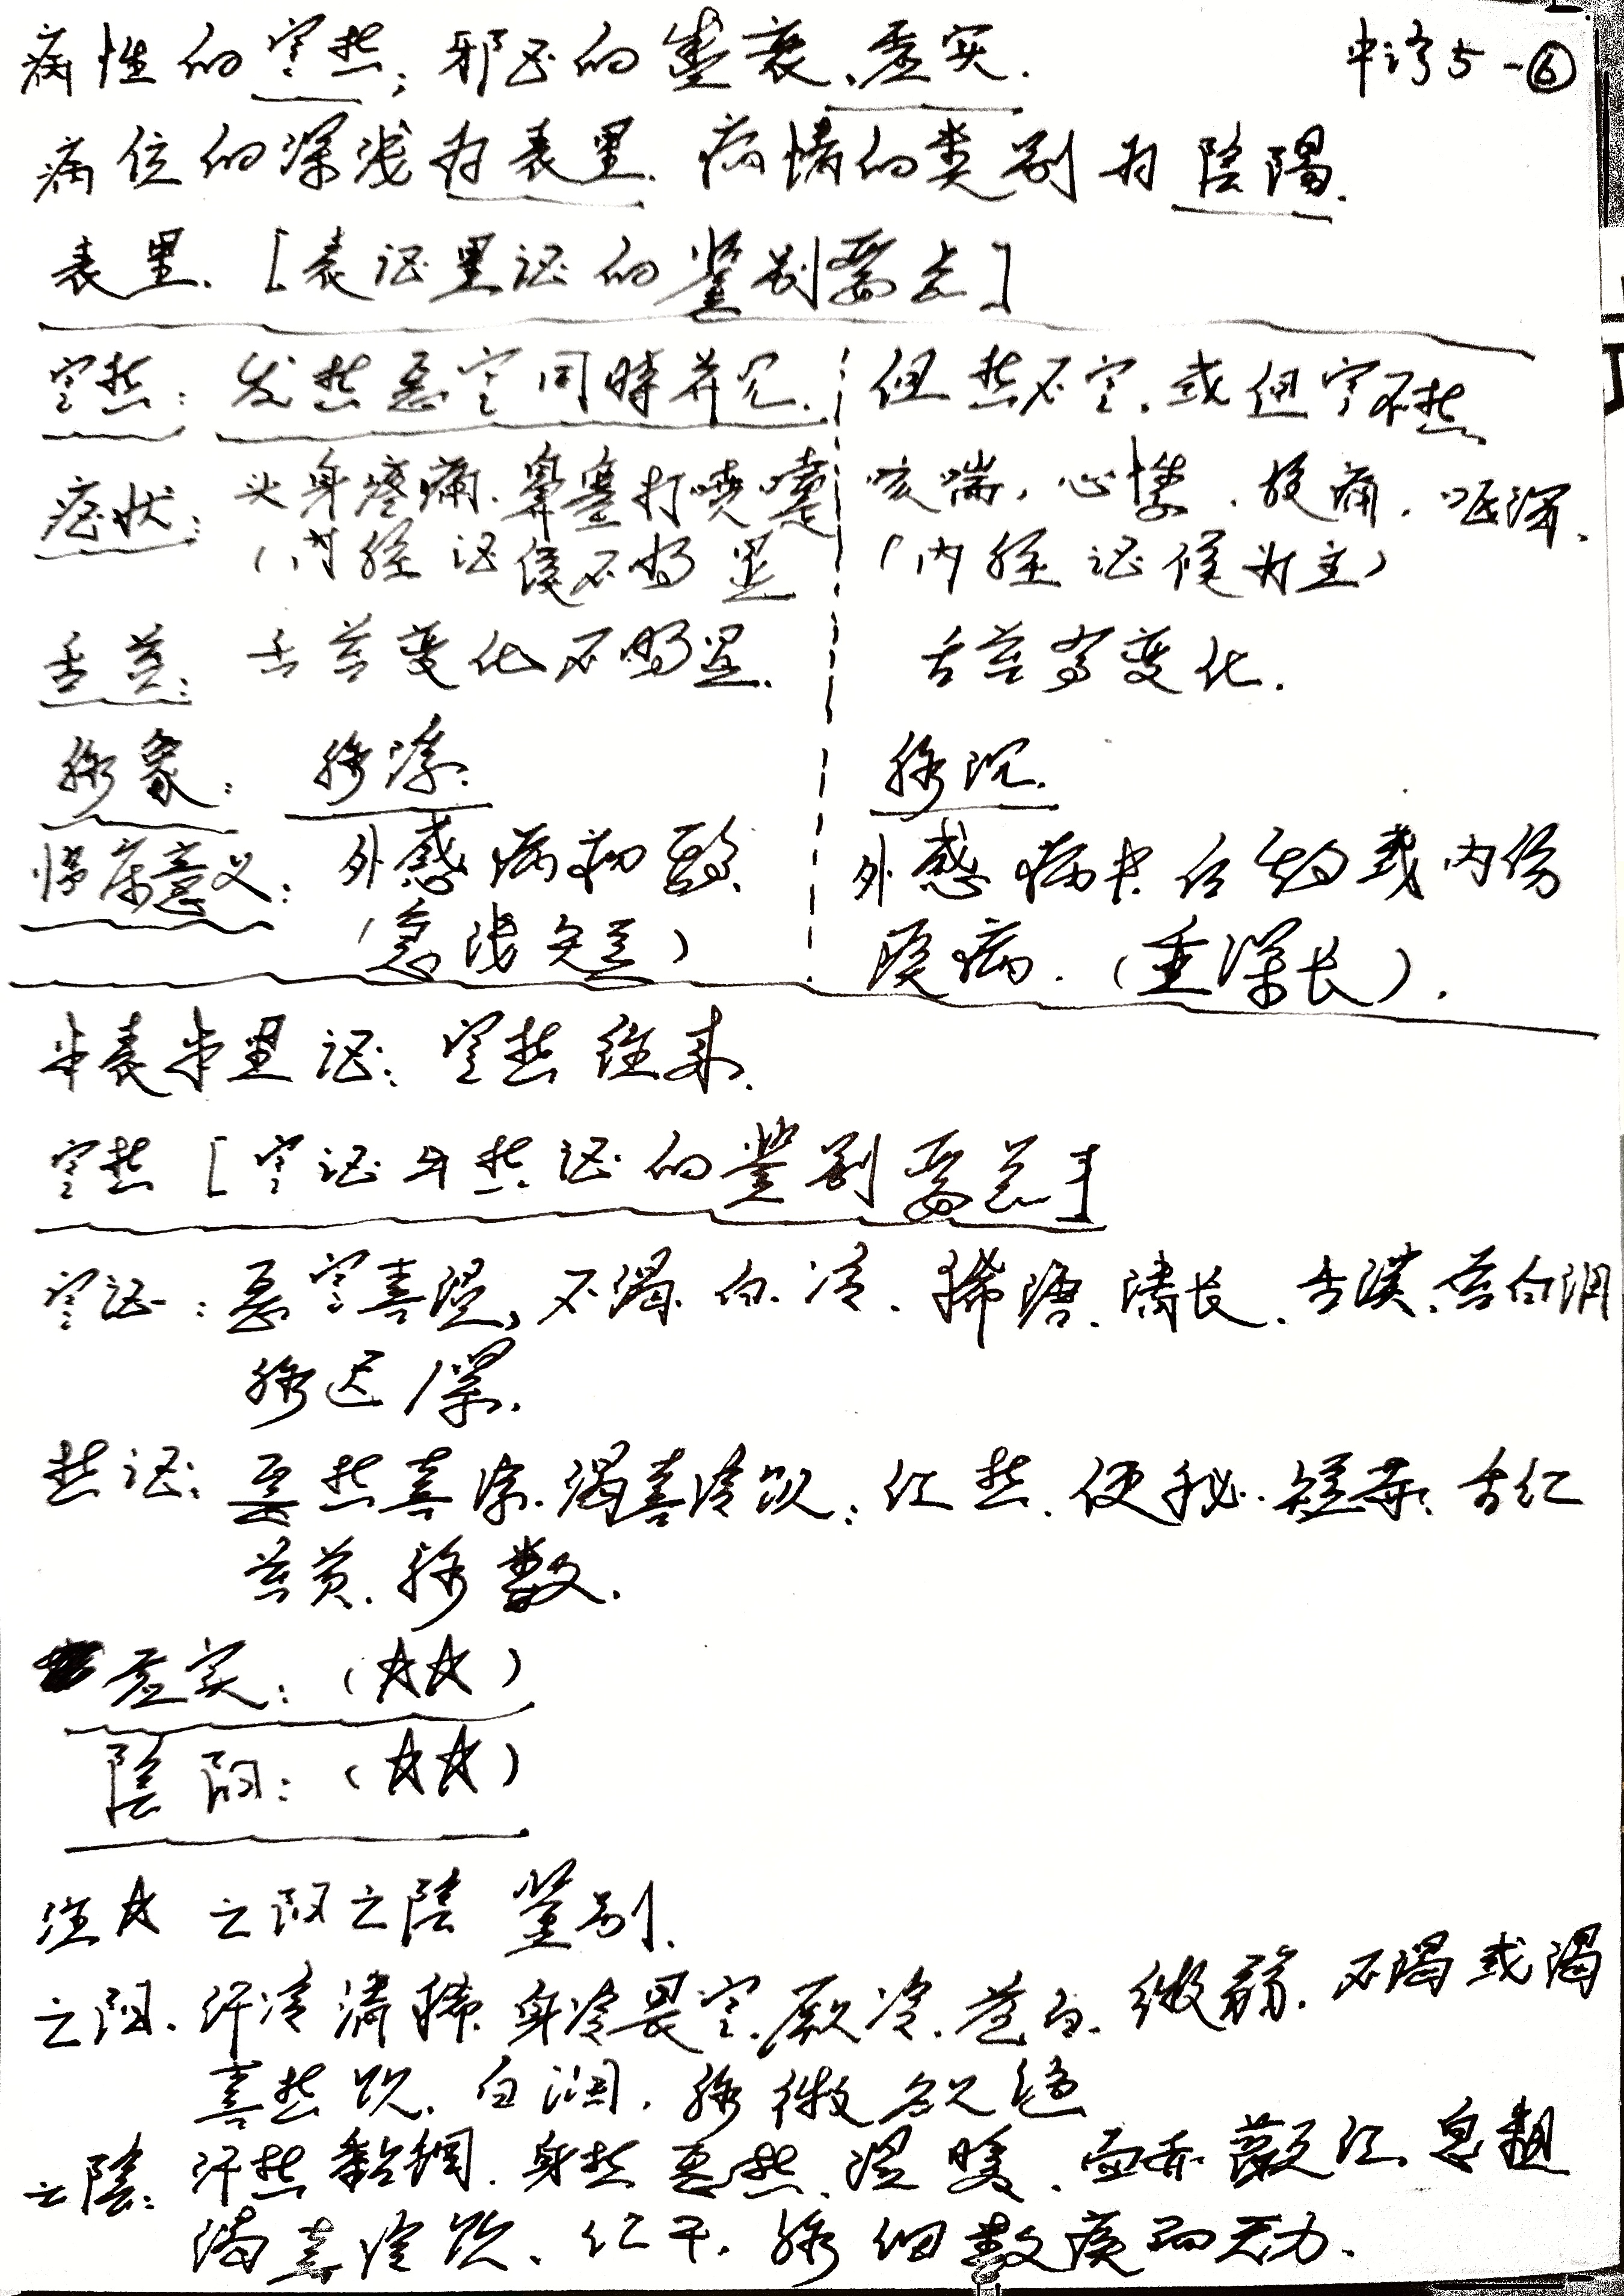 病性的寒热;邪正的盛衰、虚实. 中诊5-⑥
病位的深浅为表里. 病情的类别为陰陽.
表里.[表证里证的鉴别要点]
寒热:发热恶寒同時并见. 但热不寒.或但寒不热
症状:头身疼痛.鼻塞打喷嚏 咳喘,心悸.腹痛.呕泻.
(内脏证候不明显 (内脏证候为主)
舌苔:舌苔变化不明显. 舌苔多变化.
脉象:脉浮. 脉沉.
临床意义:外感病初起. 外感病中后期或内伤
(急浅短) 疾病.(重深长).
半表半里证:寒热往来.
寒热[寒证与热证的鉴别要点]
寒证:恶寒喜温,不渴.白.冷.稀溏.清长.舌淡.苔白润
脉迟/紧.
热证:恶热喜凉.渴喜冷饮;红热.便秘.短赤.舌红
苔黄.脉数.
虚实:(☆☆)
陰阳:(☆☆)
注☆ 亡阳亡陰 鉴别.
亡阳.汗冷清稀.身冷畏寒.厥冷.苍白.微弱.不渴或渴
喜热饮.白润.脉微欲绝
亡陰:汗热黏稠.身热恶热.温暖.面赤颧红.息粗
渴喜冷饮.红干.脉细数疾而无力.